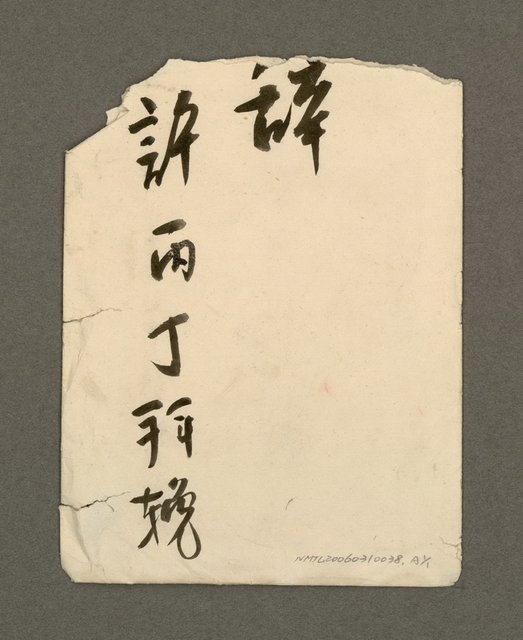 辭
許丙丁拜輓
NMTL20060310038, A1/1